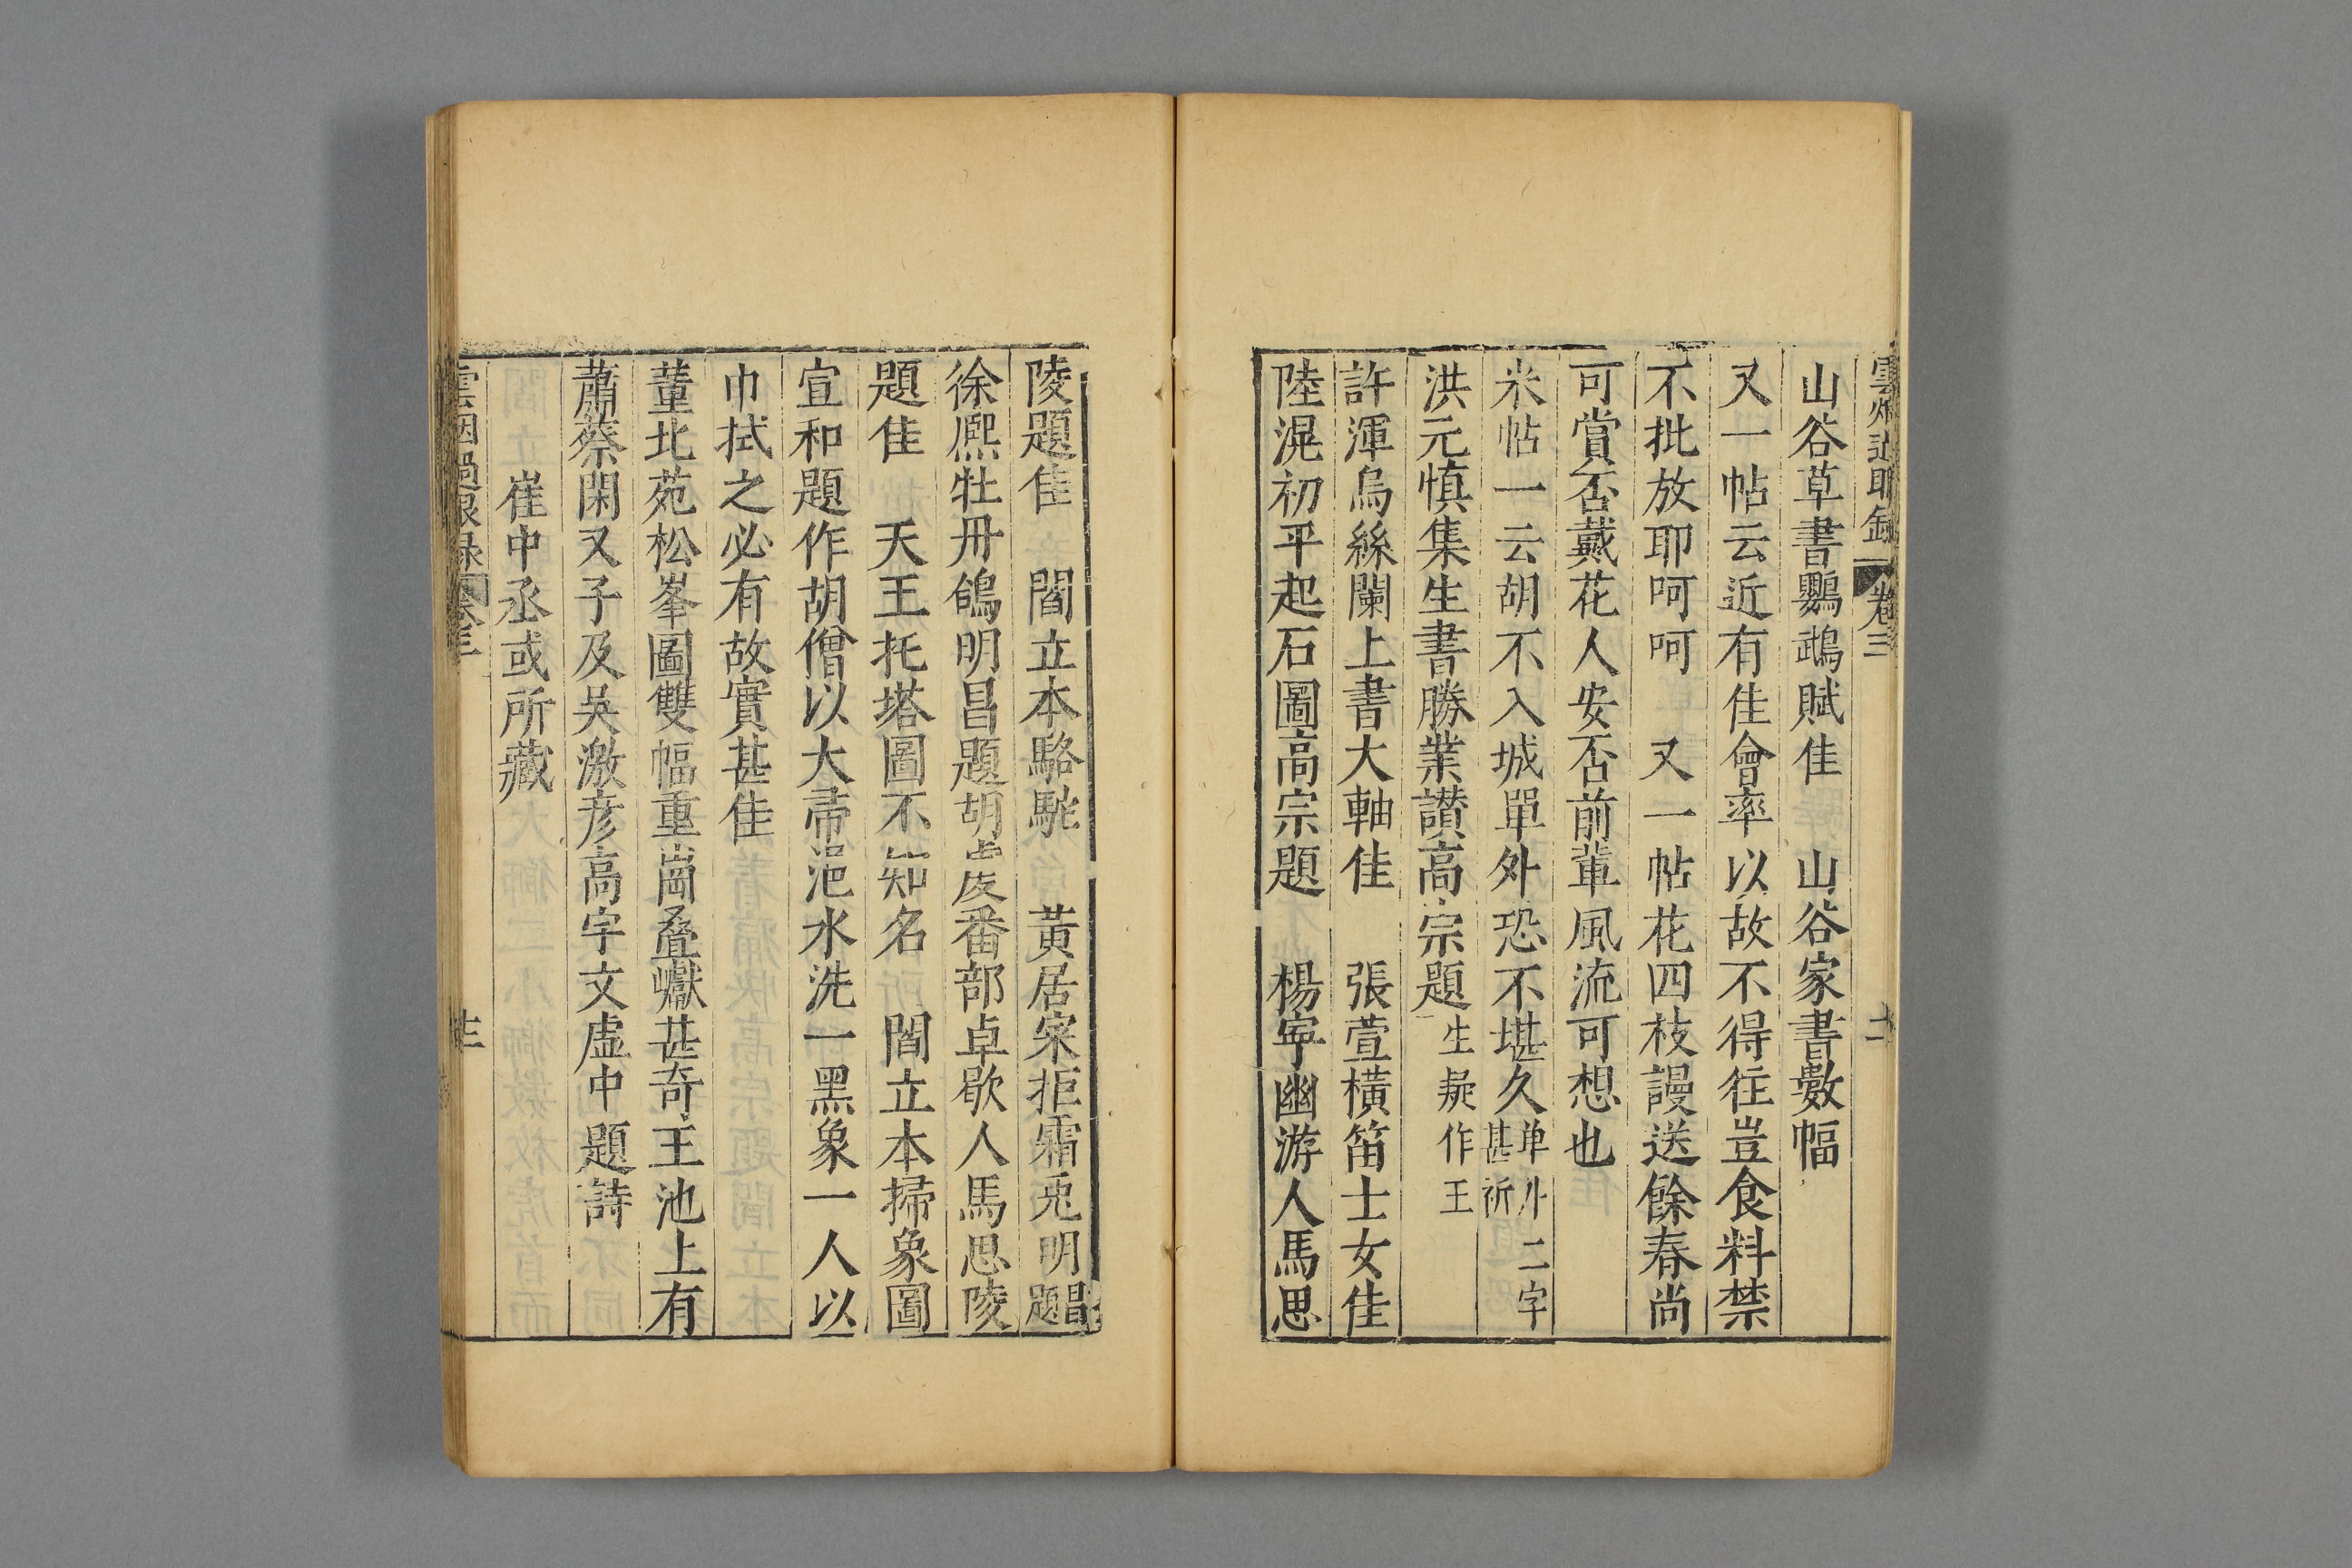 雲烟過眼錄 卷三 十二
山谷草書鸚鵡賦佳 山谷家書數幅
又一帖云近有佳會率以故不得往豈食料禁
不批放耶呵呵 又一帖花四枝謾送餘春尚
可賞否戴花人安否前輩風流可想也
米帖一云胡不入城單外恐不堪久单外二字甚祈
洪元慎集生書勝業讃高宗題生疑作王
許渾烏絲闌上書大軸佳 張萱橫笛士女佳
陸滉初平起石圖高宗題 楊寕幽游人馬思
陵題佳 閻立本駱駝 黃居寀拒霜兎明昌題
徐熈牡丹鴿明昌題胡虔番部卓歇人馬思陵
題佳 天王托塔圖不知名 閻立本掃象圖
宣和題作胡僧以大帚浥水洗一黑象一人以
巾拭之必有故實甚佳
董北苑松峯圖雙幅重崗叠巘甚奇王池上有
蕭蔡閑又子及吳激彥高宇文虛中題詩
崔中丞或所藏
雲烟過眼錄 卷三